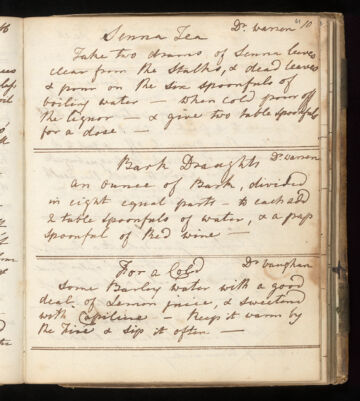 Senna Tea Dr. Warren
Take two drams of Senna leaves
clear from the Stalks, & dead leaves
& pour on the six spoonfuls of
boiling water — when cold pour off
the liquor — & give two table spoonfuls
for a dose. —
Bark Draughts Dr. Warren
an ounce of Bark, divided
in eight equal parts — to each add
2 table spoonfuls of water, & a pap
spoonful of Red wine —
For a Cold Dr. Vaughan
Some Barley water with a good
deal of Lemon juice, & sweetened
with Capilaire — keep it warm by
the Fire & sip it often —